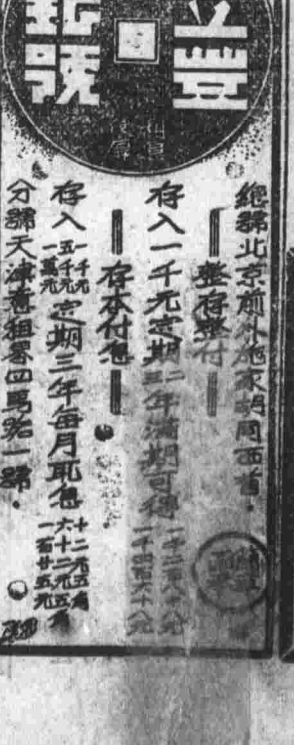 立豐
號
總號北京前外施家胡同西首．
整存整付
存入一千元定期二年滿期可得
三
一千二百八十元
一千四百六十八元
存本付息
存入一千元
五千元
一萬元
定期三年每月取息
十二元五角
六十二元五角
一百廿五元
分號天津舊租界四馬路一號．